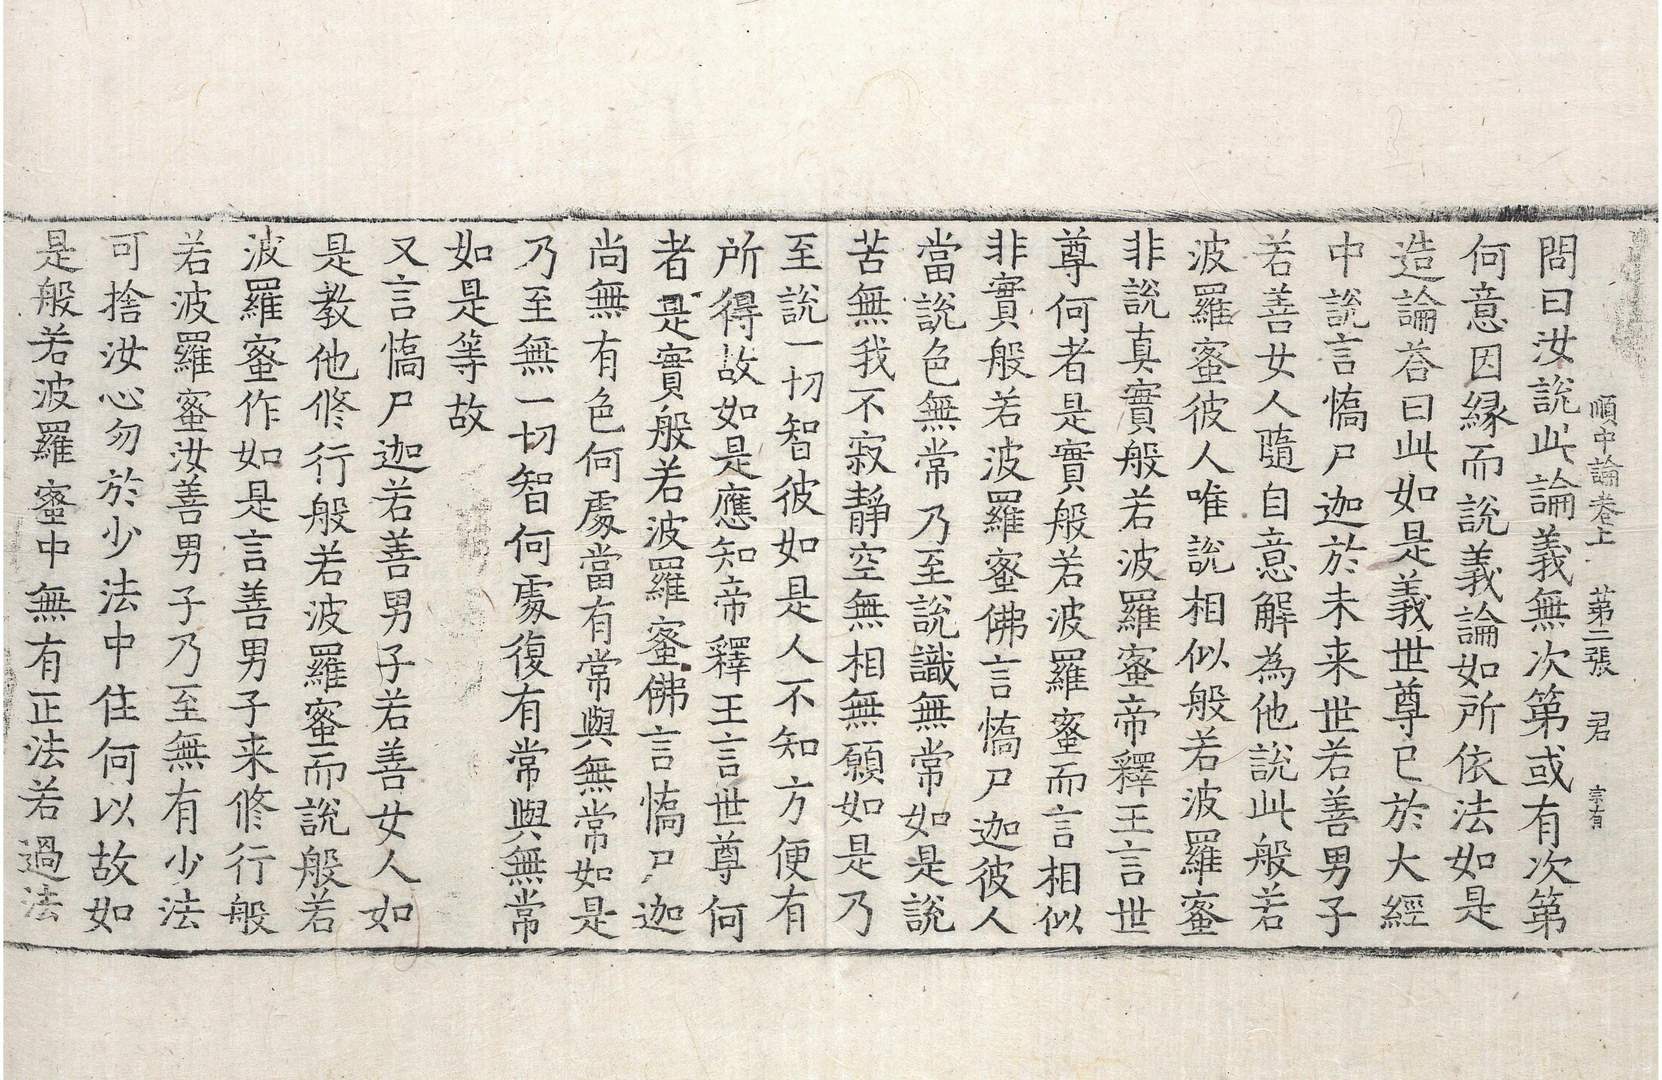 順中論卷上 第二張 君 宗有
問曰汝說此論義無次第或有次第
何意因緣而說義論如所依法如是
造論荅曰此如是義世尊已於大經
中說言憍尸迦於未来世若善男子
若善女人隨自意解為他說此般若
波羅蜜彼人唯說相似般若波羅蜜
非說真實般若波羅蜜帝釋王言世
尊何者是實般若波羅蜜而言相似
非實般若波羅蜜佛言憍尸迦彼人
當說色無常乃至說識無常如是說
苦無我不寂靜空無相無願如是乃
至說一切智彼如是人不知方便有
所得故如是應知帝釋王言世尊何
者是實般若波羅蜜佛言憍尸迦
尚無有色何處當有常與無常如是
乃至無一切智何處復有常與無常
如是等故
又言憍尸迦若善男子若善女人如
是教他修行般若波羅蜜而說般若
波羅蜜作如是言善男子来修行般
若波羅蜜汝善男子乃至無有少法
可捨汝心勿於少法中住何以故如
是般若波羅蜜中無有正法若過法